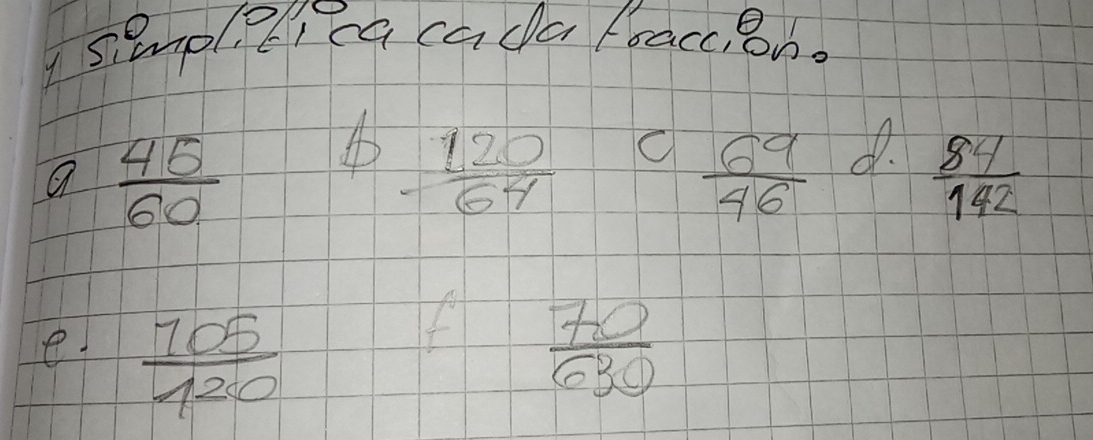 y simplifica cada fracción.
a 45/60 b 120/64 c 69/46 d. 84/142
e. 105/120 f 70/630